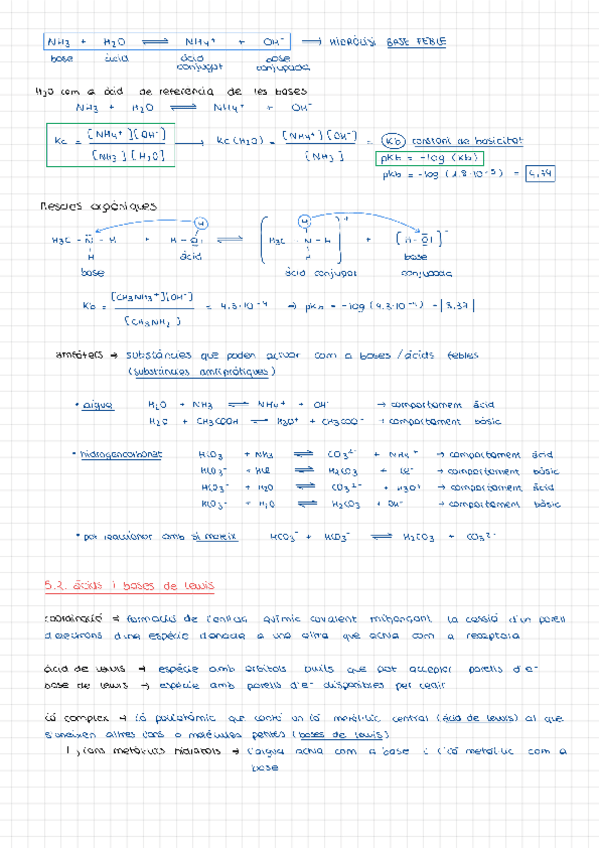 NH3 + H2O ⇌ NH4+ + OH- → HIDRÒLISI BASE FEBLE
base àcid àcid conjugat base conjugada
H2O com a àcid de referència de les bases
NH3 + H2O ⇌ NH4+ + OH-
Kc = [NH4+][OH-] / [NH3][H2O] → Kc(H2O) = [NH4+][OH-] / [NH3] = Kb constant de basicitat
pKb = -log (Kb)
pKb = -log (1.8·10-5) = 4,74
Bescles orgàniques
H3C - N - H + H - O| ⇌ [H3C - N - H]+ + [H - O|]-
base àcid àcid conjugat base conjugada
Kb = [CH3NH3+][OH-] / [CH3NH2] = 4.3·10-4 ⇒ = -log (4.3·10-4) = 3.37
amfòters → substàncies que poden actuar com a bases/àcids febles
(substàncies amfipròtiques)
• aigua H2O + NH3 ⇌ NH4+ + OH- → comportament àcid
H2O + CH3COOH ⇌ H3O+ + CH3COO- → comportament bàsic
• hidrogencarbonat HCO3 + NH3 ⇌ CO3 2- + NH4+ → comportament àcid
HCO3- + HCl ⇌ H2CO3 + Cl- → comportament bàsic
HCO3- + H2O ⇌ CO3 2- + H3O+ → comportament àcid
HCO3- + H2O ⇌ H2CO3 + OH- → comportament bàsic
• pot reaccionar amb si mateix HCO3- + HCO3- ⇌ H2CO3 + CO3 2-
5.2. àcids i bases de Lewis
coordinació → formació de l'enllaç químic covalent mitjançant la cessió d'un parell
d'electrons d'una espècie donada a una altra que actua com a receptora
àcid de Lewis → espècie amb orbitals buits que pot acceptar parells d'e-
base de Lewis → espècie amb parells d'e- disponibles per cedir
ió complex → ió poliatòmic que conté un ió metàl·lic central (àcid de Lewis) al que
s'uneixen altres ions o molècules petites (bases de Lewis)
ions metàl·lics hidratats → l'aigua actua com a base i l'ió metàl·lic com a
base